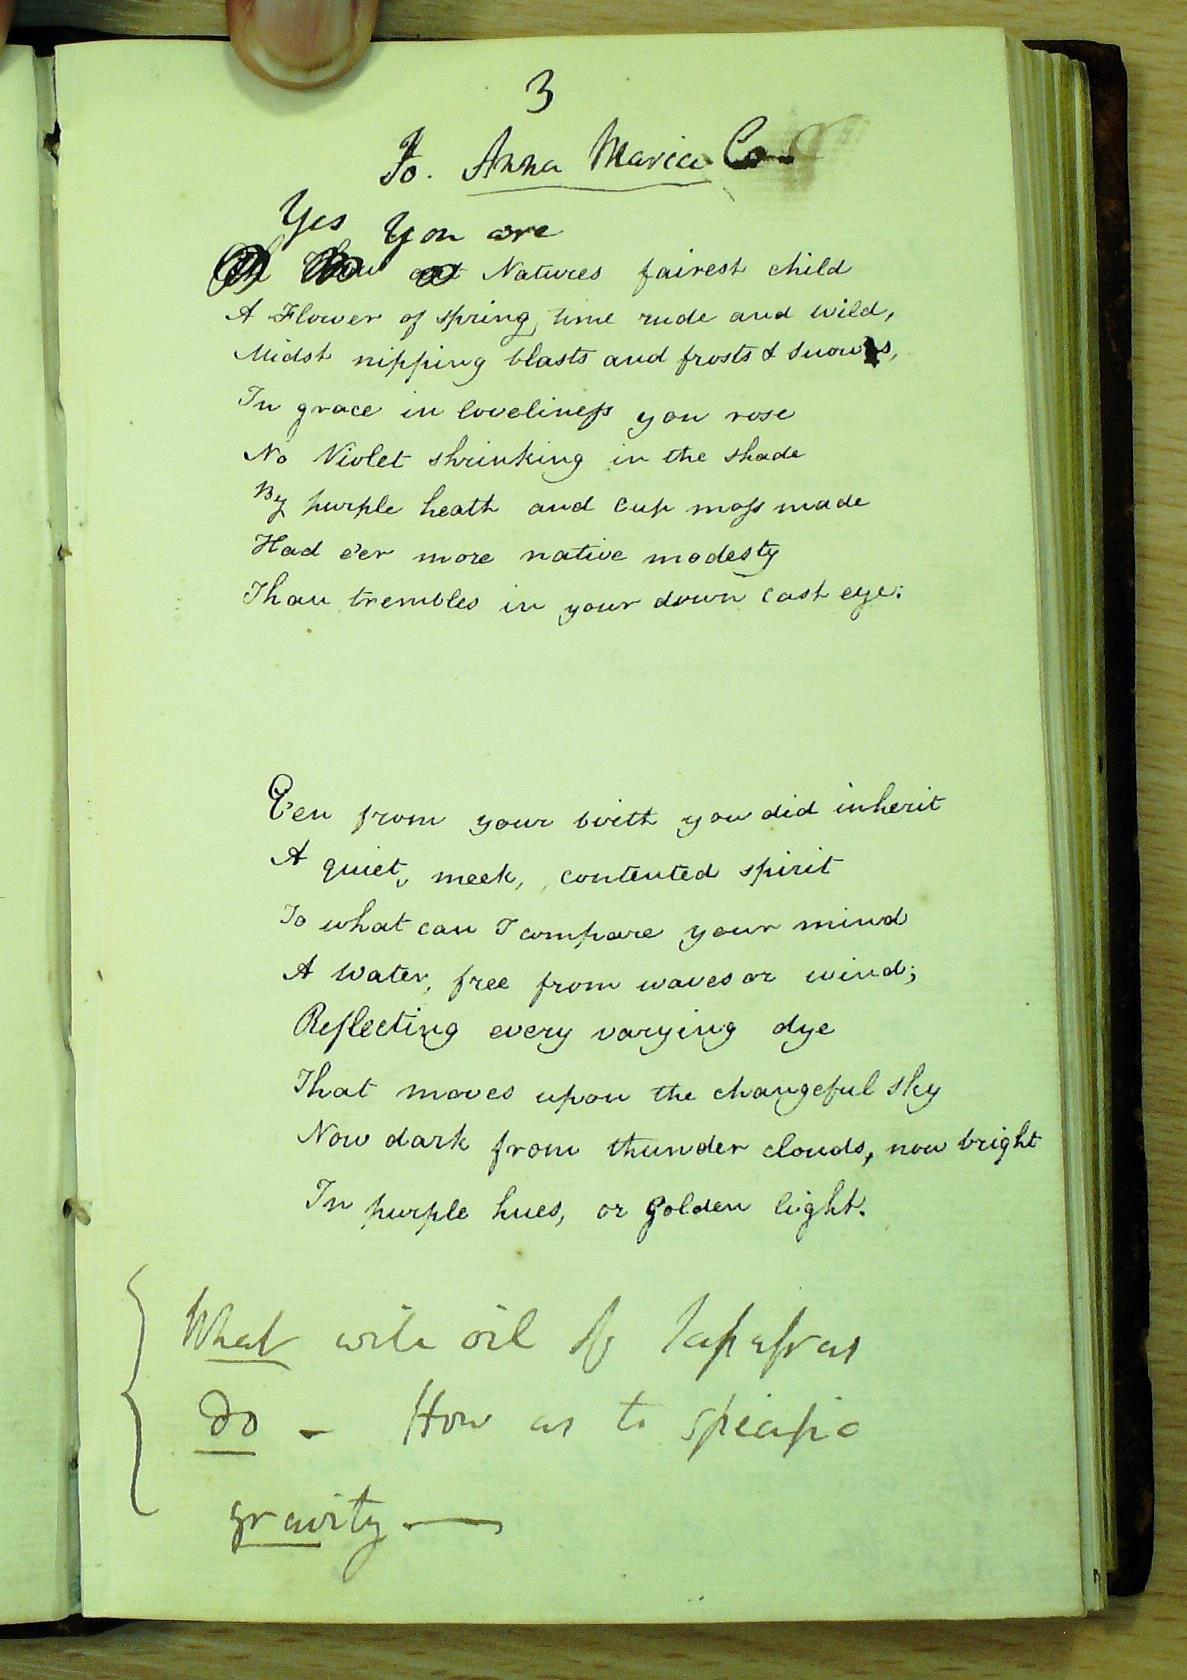 3
To. Anna Maria Co
Yes You are
Oh Thou art Natures fairest child
A Flower of spring time rude and wild,
Midst nipping blasts and frosts & snows,
In grace in loveliness you rose
No Violet shrinking in the shade
By purple heath and cup moss made
Had e'er more native modesty
Than trembles in your down cast eye.
E'en from your birth you did inherit
A quiet, meek, contented spirit
To what can I compare your mind
A Water, free from waves or wind;
Reflecting every varying dye
That moves upon the changeful sky
Now dark from thunder clouds, now bright
In purple hues, or golden light.
What will oil of
do - How as to specific
gravity —